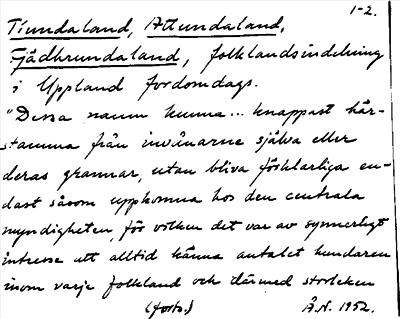 1-2.
Tiundaland, Attundaland,
Fjädhrundaland, folklandsindelning
i Uppland fordomdags.
"Dessa namn kunna... knappast här-
stamma från invånarne själva eller
deras grannar, utan bliva förklarliga en-
dast såsom uppkomna hos den centrala
myndigheten, för vilken det var av synnerligt
intresse att alltid känna antalet hundaren
inom varje folkland och därmed storleken
(forts.) Å.N. 1952.